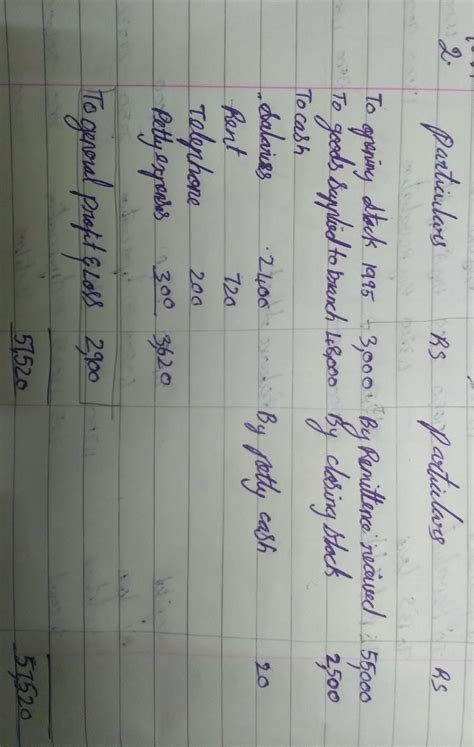 2.
Particulars RS Particulars RS
To opening stock 1995 3,000 By Remittence received 55000
To goods supplied to branch 48,000 By closing stock 2,500
To cash
Salaries 2400 By petty cash 20
Rent 720
Telephone 200
Petty expenses 300 3,620
To general profit & loss 2,900
57,520 57,520